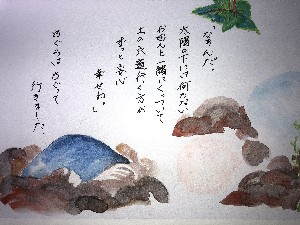 「なぁんだ。
太陽の下には何もない
お母さんと一緒にくっついて
土の穴道行く方が
ずっと安心
幸せね。」
もぐらは もぐって
行きました。